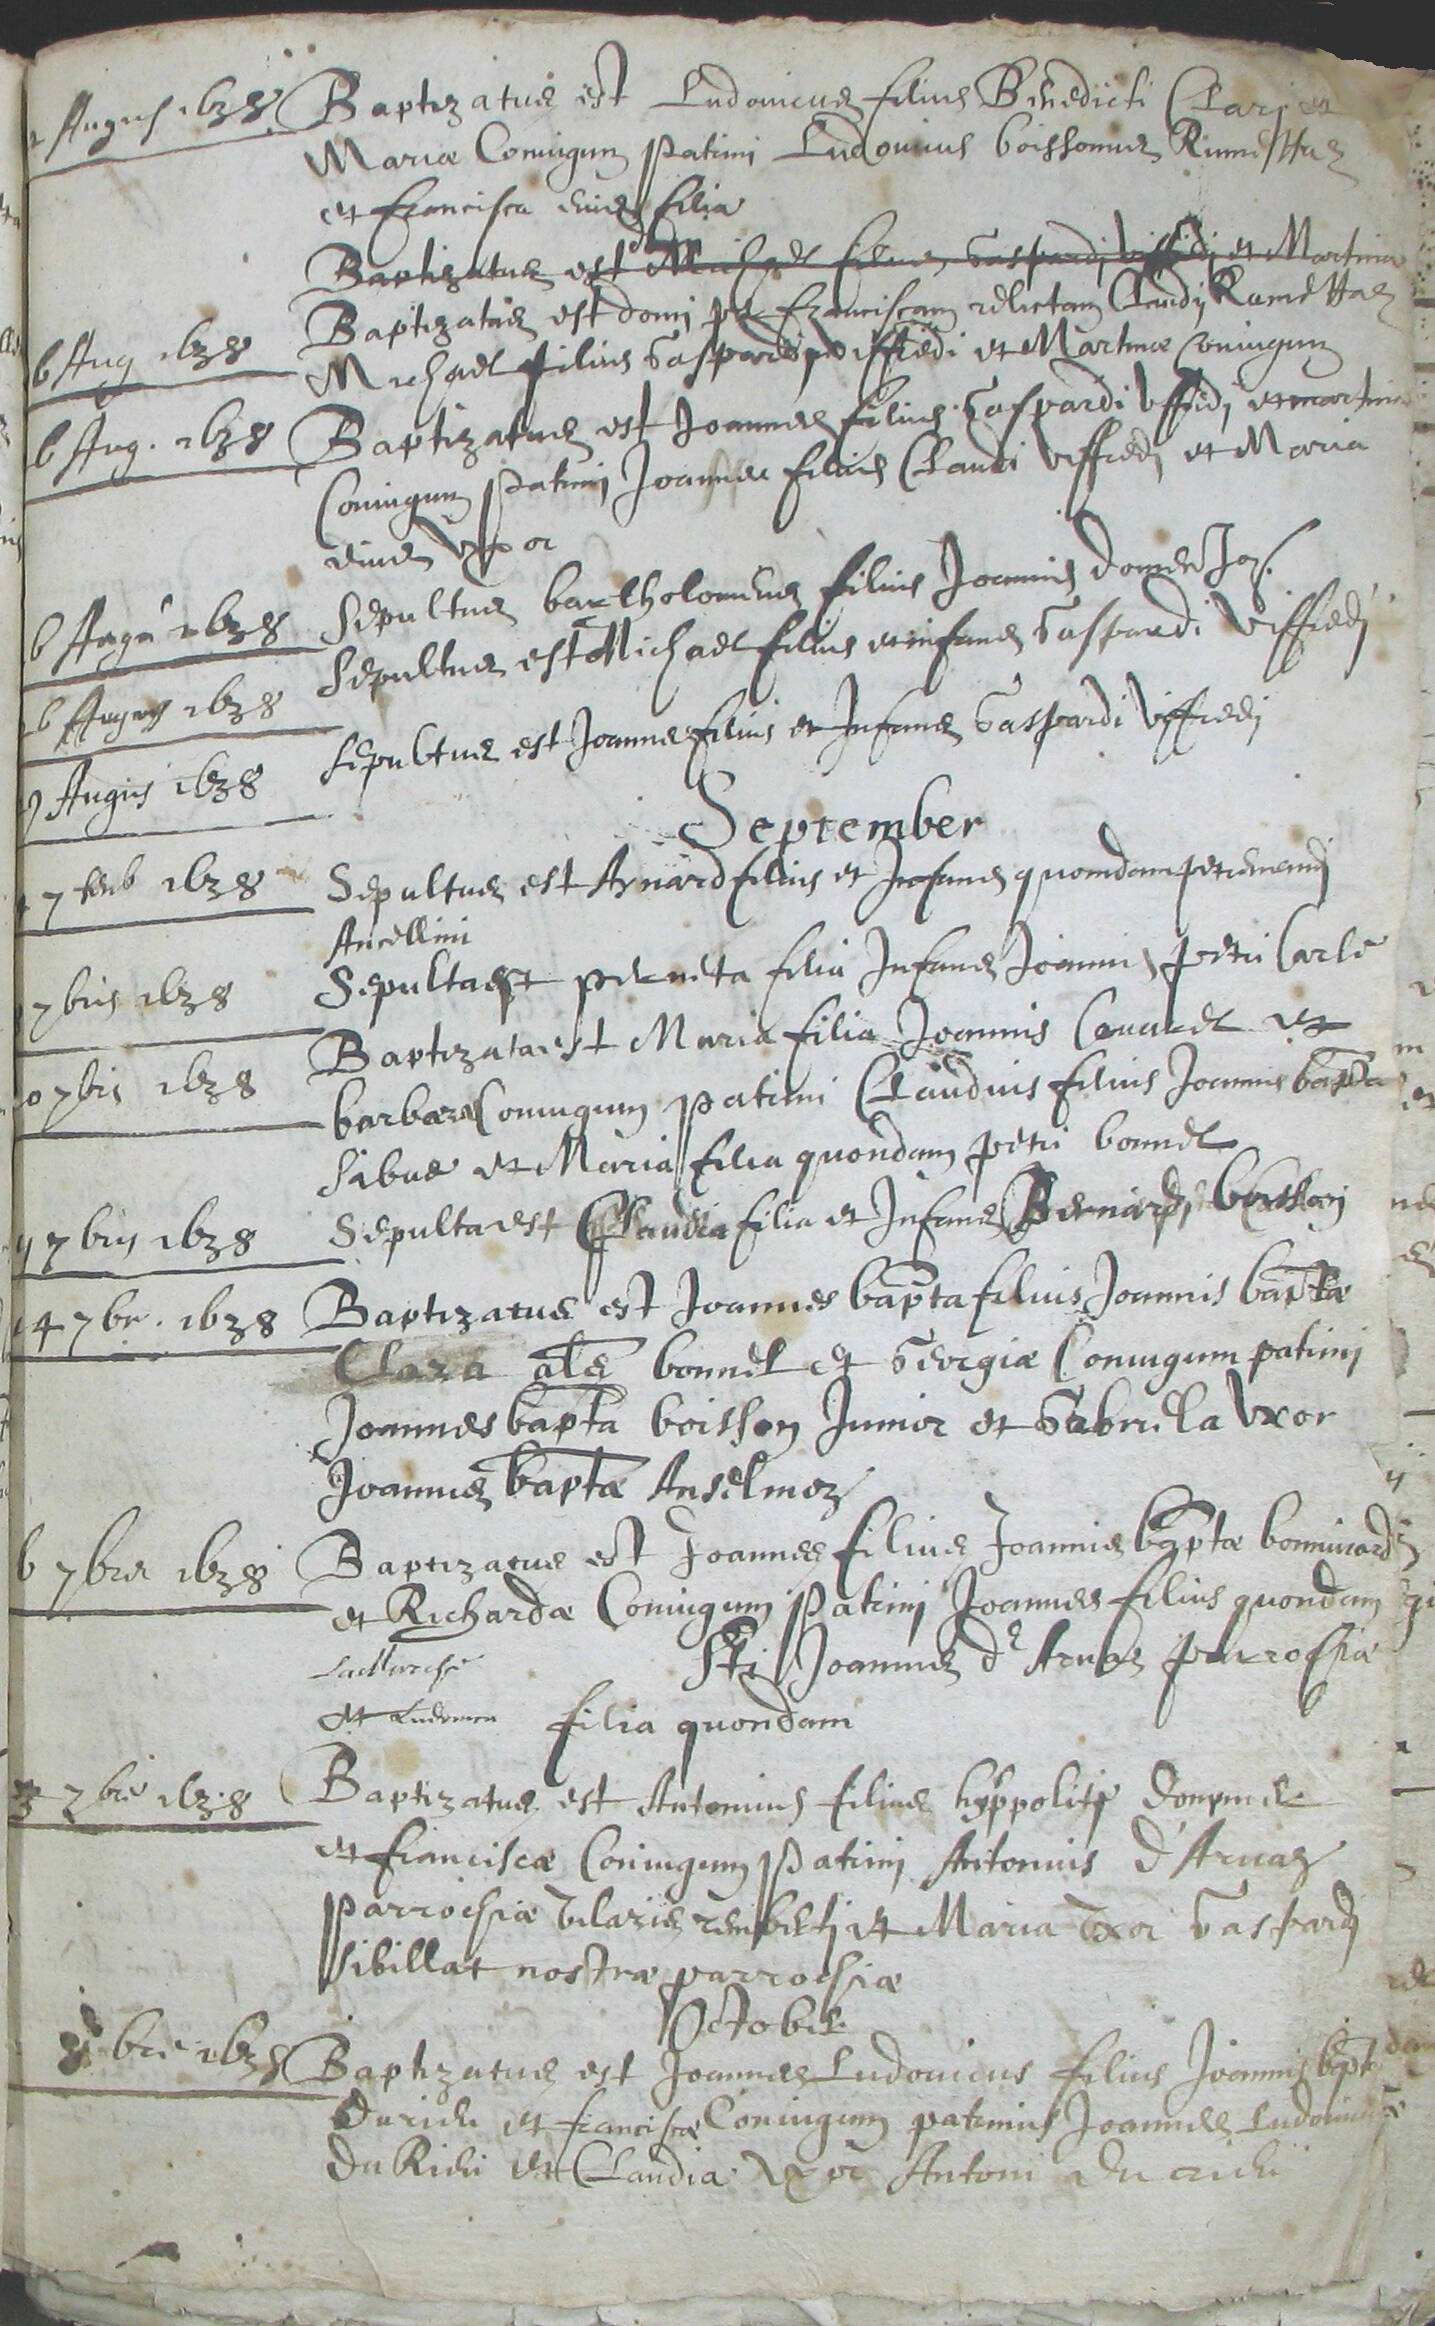 Augusti 1638 Baptizatus est Ludovicus filius Benedicti Clarj et
Mariæ Coniugum patrini Ludovicus boissonus
et Francisca eius filia
Baptizatus est Michael filius Gaspardi Viffredj et Martinæ
6 Aug 1638 Baptizatus est domj per Franciscam relictam Claudj
Michael filius Gaspardi Viffredi et Martinæ Coniugum
6 Aug. 1638 Baptizatus est Joannes filius Gaspardi Viffredj et martinæ
Coniugum patrinj Joannes filius Claudi Viffredj et Maria
eius Uxor
6 Augu 1638 Sepultus bartholomeus filius Joannis
6 Augus 1638 Sepultus est Michael filius et infans Gaspardi Viffredj
Augus 1638 Sepultus est Joannes filius et Infans Gaspardi Viffredj
September
7temb 1638 Sepultus est Aynard filius et Infans quomdam
Ancellini
7bris 1638 Sepulta est perneta filia Infans Joannis petri Carle
0 7bris 1638 Baptizata est Maria filia Joannis et
barbaræ Coniugum patrini Claudius filius Joannis bapta
Sibue et Maria filia quondam petri bonnet
7bris 1638 Sepulta est Claudia filia et Infans Bernardj boisson
14 7br. 1638 Baptizatus est Joannes bapta filius Joannis baptæ
Clara als bonnet et Georgiæ Coniugum patrinj
Joannes bapta boisson Junior et Gabriela Uxor
Joannis baptæ Anselmoz
6 7bris 1638 Baptizatus est Joannes filius Joannis baptæ bonnivardj
et Richardæ Coniugum patrinj Joannes filius quondam
Sti Joannis d' Arvas parrochiæ
et Ludovica filia quondam
7bre 1638 Baptizatus est Antonius filius hyppolitj
et Franciscæ Coniugum patrinj Antonius d'Arvas
parrochiæ et Maria Uxor Gaspardj
Sibillat nostræ parrochiæ
October
8bre 1638 Baptizatus est Joannes Ludovicus filius Joannis bapt
et franciscæ Coniugum patrinus Joannes Ludovicus
et Claudia Uxor Antoni